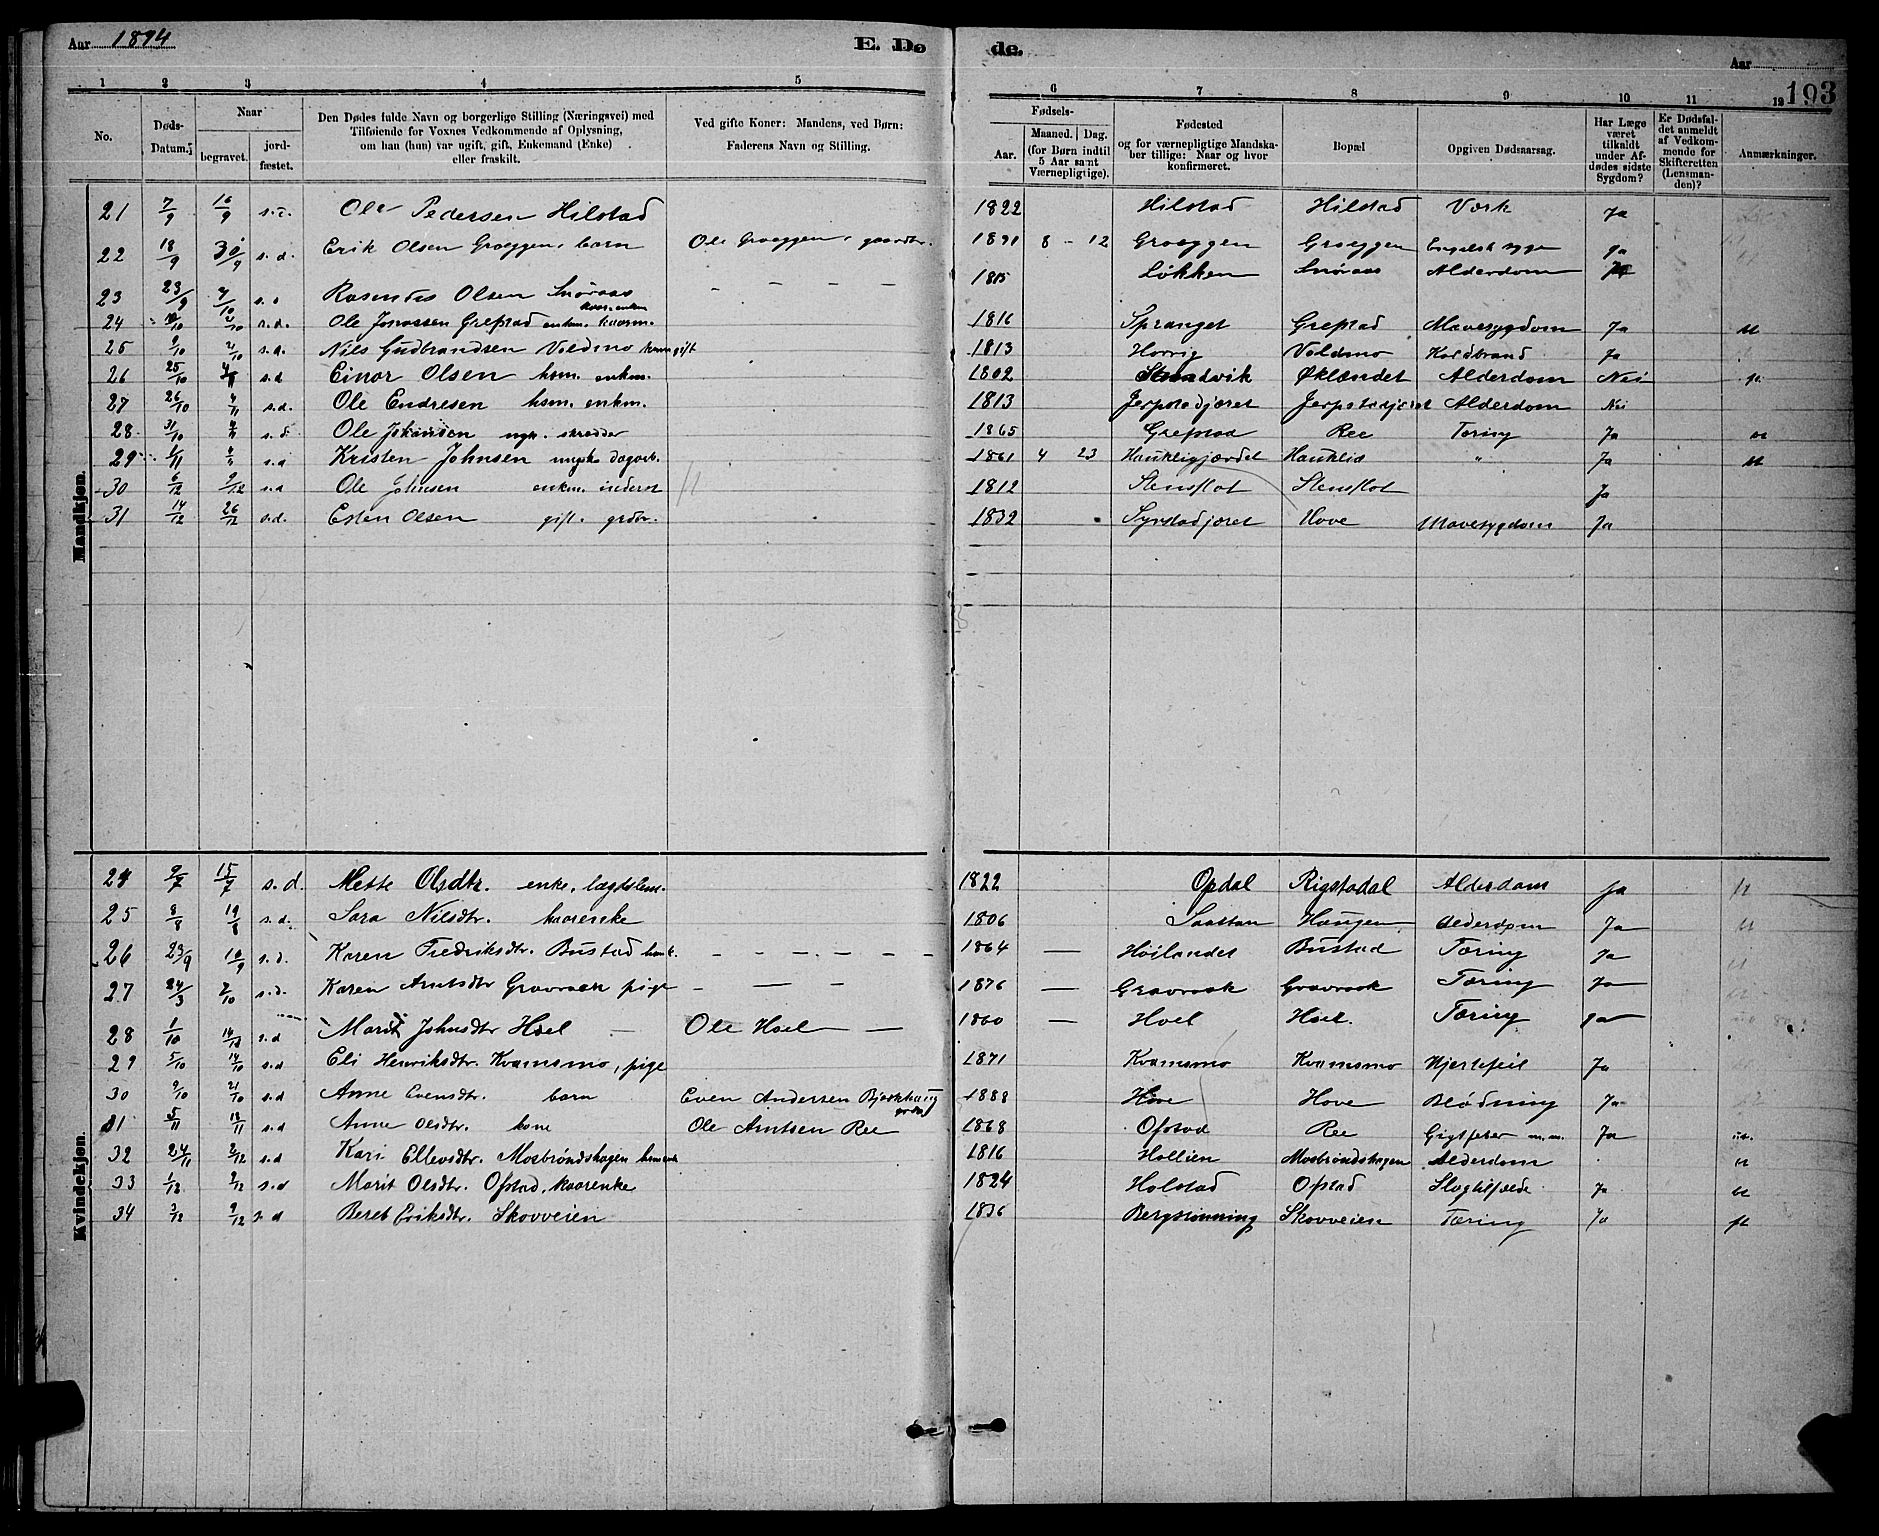 Aar 1894 E. Dø de. Aar 193
1 2 3 4 5 6 7 8 9 10 11 12
No. Døds-Datum. Naar begravet. jordfæstet. Den Dødes fulde Navn og borgerlige Stilling (Næringsvei) med Tilføiende for Voxnes Vedkommende af Oplysning, om han (hun) var ugift, gift, Enkemand (Enke) eller fraskilt. Ved gifte Koner: Mandens, ved Børn: Faderens Navn og Stilling. Fødsels- Aar. Maaned. Dag. (for Børn indtil 5 Aar samt Værnepligtige). Fødested og for værnepligtige Mandskaber tillige: Naar og hvor konfirmeret. Bopæl Opgiven Dødsaarsag. Har Læge været tilkaldt under Afdødes sidste Sygdom? Er Dødsfaldet anmeldt af Vedkommende for Skifteretten (Lensmanden)? Anmærkninger.
Mandkjøn.
21 7/9 16/9 s.d. Ole Pedersen Hilstad 1822 Hilstad Hilstad Værk Ja
22 18/9 30/9 s.d. Erik Olsen Groeggen, barn Ole Groeggen, gaardbr. 1891 8 - 12 Groeggen Groeggen Engelsk syge ja
23 23/9 /10 s.d. Olsen Snøraas - - - - 1815 Løkken Snøraas Alderdom
24 /10 /10 s.d. Ole Jonassen Grefstad enkm. kaarm. 1816 Spranget Grefstad Mavesygdom Ja
25 9/10 21/10 s.d. Nils Gudbrandsen Voldmo gift 1813 Horvig Voldmo Koldbrand Ja
26 25/10 4/11 s.d. Einar Olsen hsm. enkm. 1802 Øklandet Alderdom Nei
27 26/10 4/11 s.d. Ole Endresen hsm. enkm. 1813 Jerpstadjæret Jerpstadjæret Alderdom Nei
28 31/10 /11 s.d. Ole Johansen ugk. skrædder 1865 Grefstad Ree Tæring Ja
29 1/11 s.d. Kristen Johnsen ungk. dagarb. 1861 4 23 Haukligjærdet Hauklia " Ja
30 6/12 9/12 s.d. Ole Johnsen enkm. inderst 1812 Stenslot Stenslot Ja
31 14/12 26/12 s.d. Esten Olsen gift. grdbr. 1832 Syrstadjæret Hove Mavesygdom Ja
Kvindekjøn.
24 9/7 15/7 s.d. Mette Olsdtr. enke, lægdslem. 1822 Opdal Rigstadal Alderdom Ja
25 8/8 19/8 s.d. Sara Nilsdtr. kaarenke 1806 Saattan Haugen Alderdom Ja
26 23/9 10/9 s.d. Karen Fredriksdtr. Bustad - - - - 1864 — Høilandet Bustad Tæring Ja
27 24/3 2/10 s.d. Karen Arntsdtr Gravraak pige - — - 1876 — Gravraak Gravraak Tæring Ja
28 1/10 14/10 s.d Marit Johnsdtr Hoel — Ole Hoel — 1860 — Hoel Hoel. Tæring ja
29 5/10 14/10 s.d Eli Henriksdtr. Kvamsmo, pige 1871 Kvamsmo Kvamsmo Hjertefeil Ja
30 9/10 21/10 s.d Anne Evensdtr. barn Even Andersen Bjørkhaug 1888 Hove Hove Blødning Ja
31 5/11 18/11 s.d Anne Olsdtr. kone Ole Arntsen Ree 1868 Ofstad Ree Gigtfeber m.m. Ja
32 24/11 2/12 s.d Kari Ellevsdtr. Mosbrøndshagen 1816 Hollien Mosbrøndshagen Alderdom
33 1/12 2/12 s.d Marit Olsdtr. Ofstad, kaarenke 1824 Holstad Ofstad Slagtilfælde Ja
34 3/12 9/12 s.d Beret Eriksdtr. Skovveien 1836 Bergsrønning Skovveien Tæring Ja